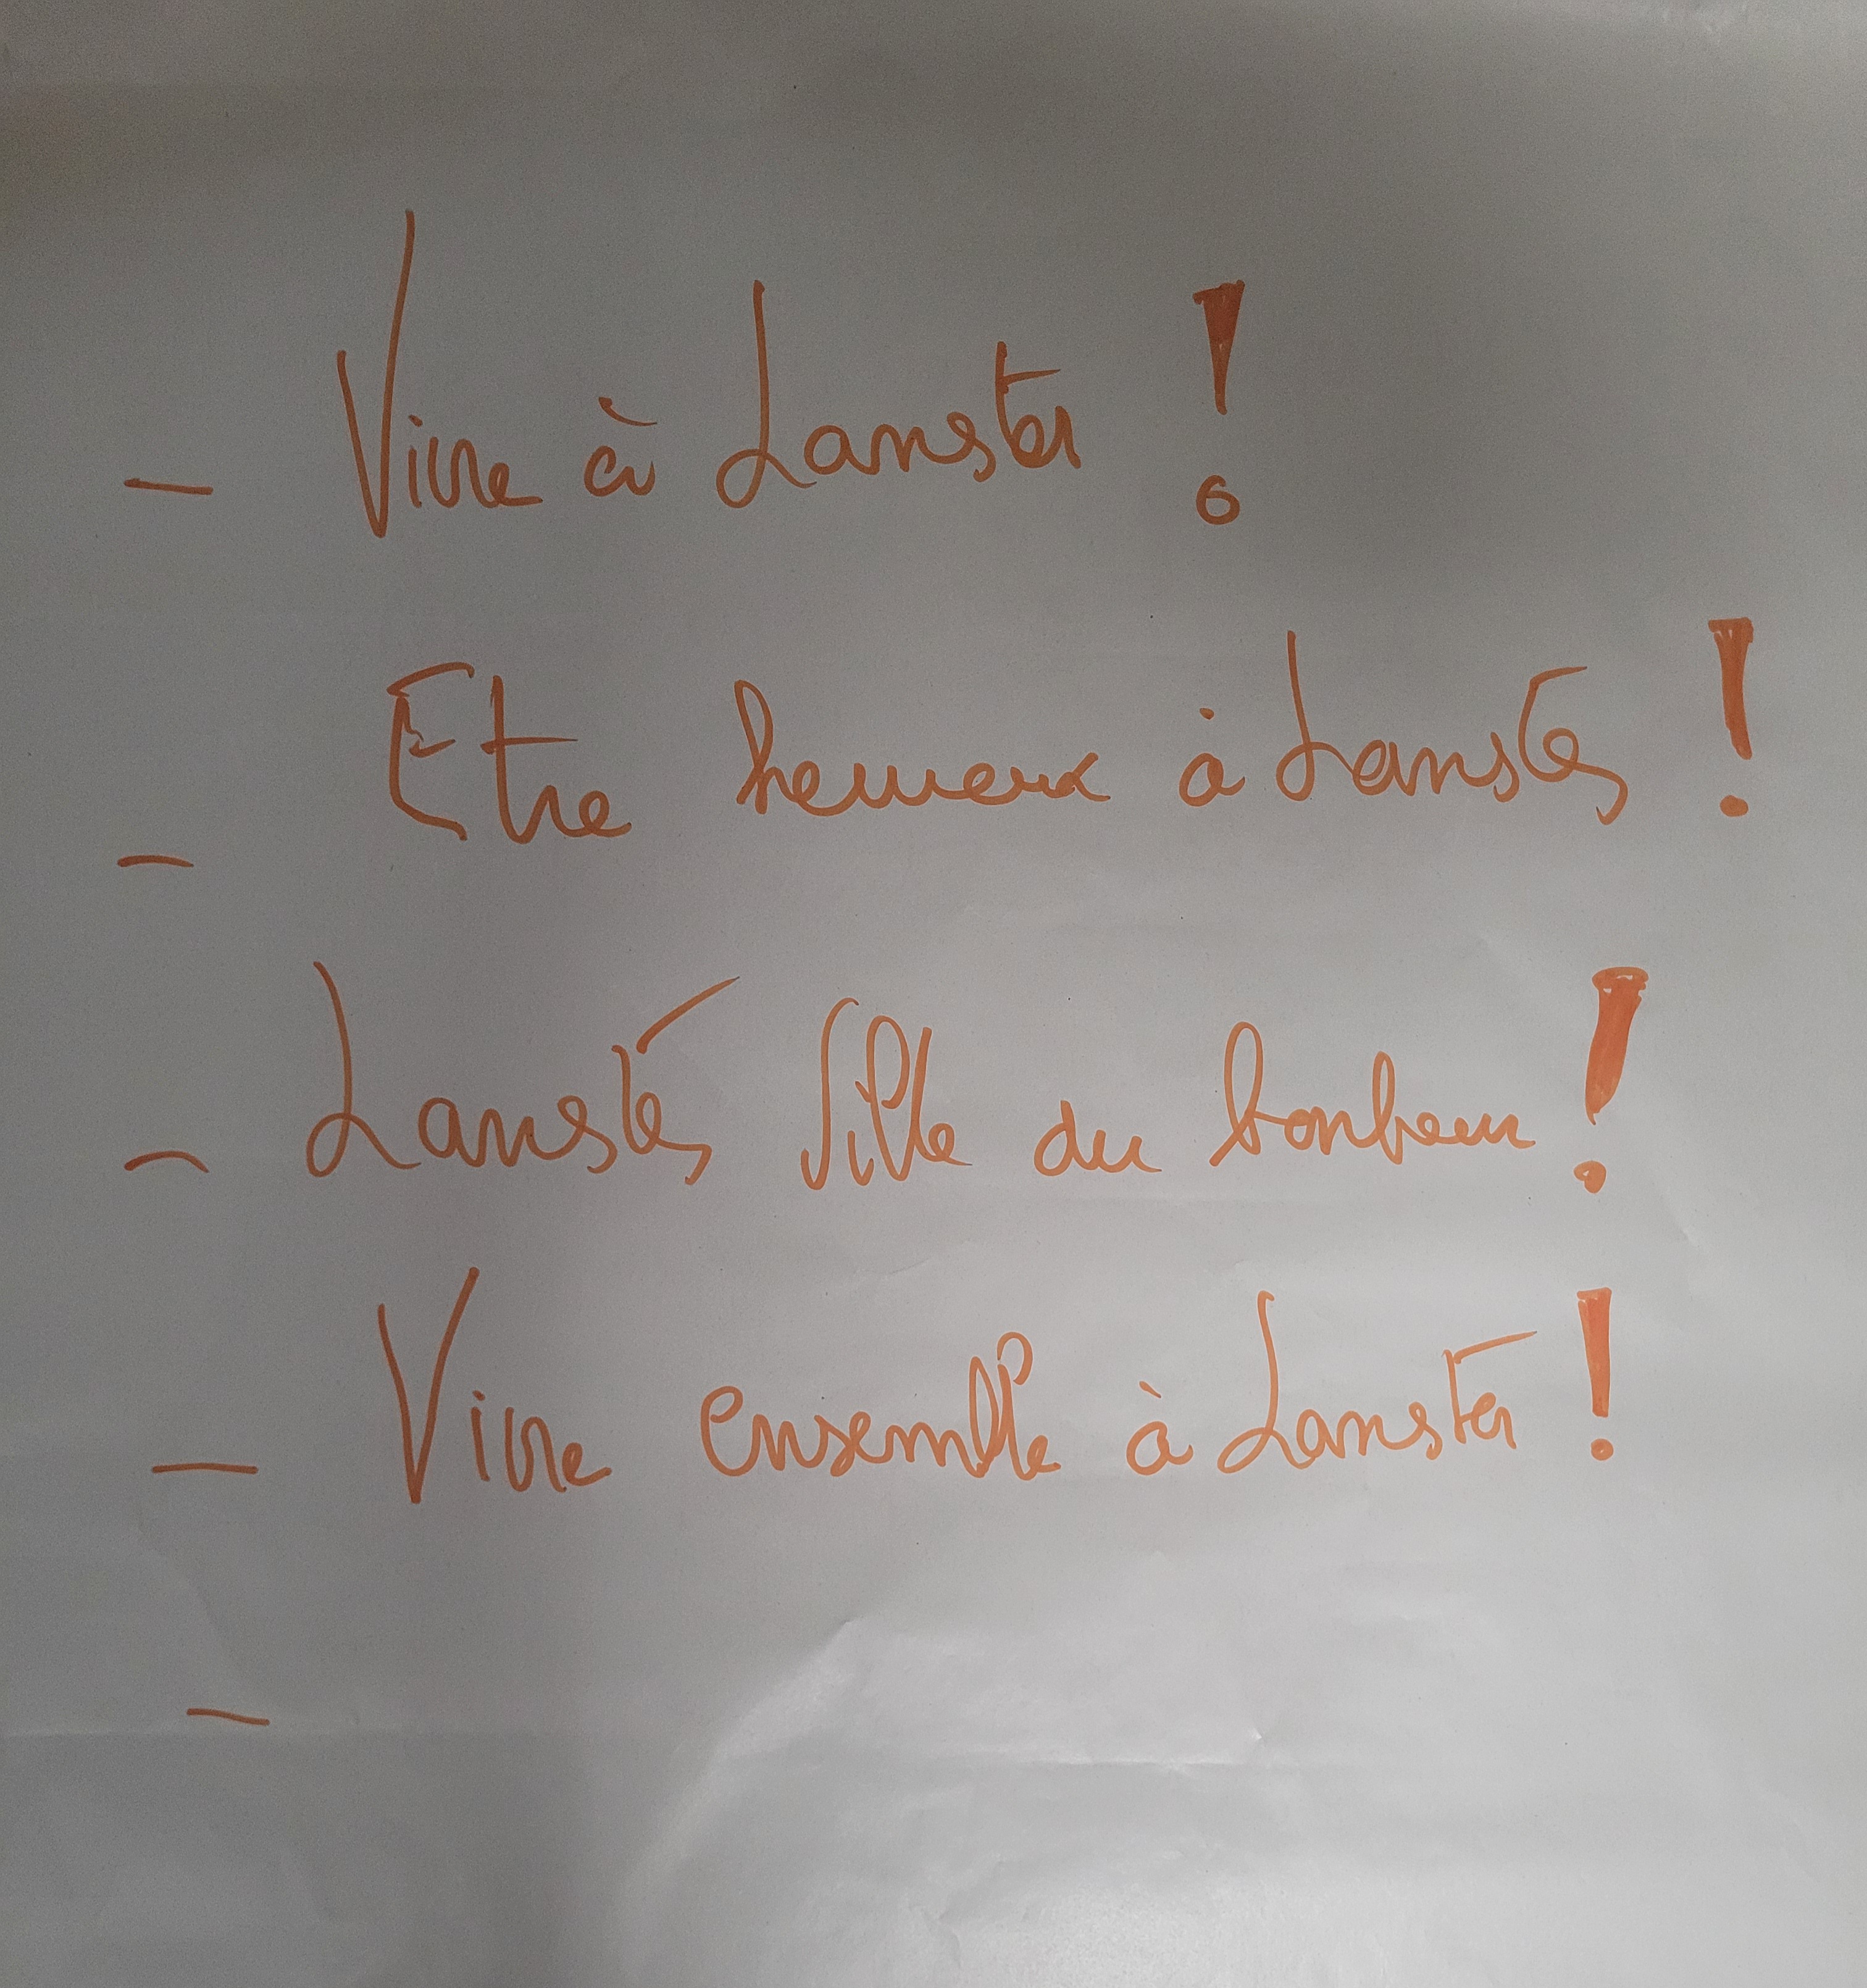 - Vivre à Lanster !
- Etre heureux à Lanster !
- Lanster Ville du bonheur !
- Vivre ensemble à Lanster !
-